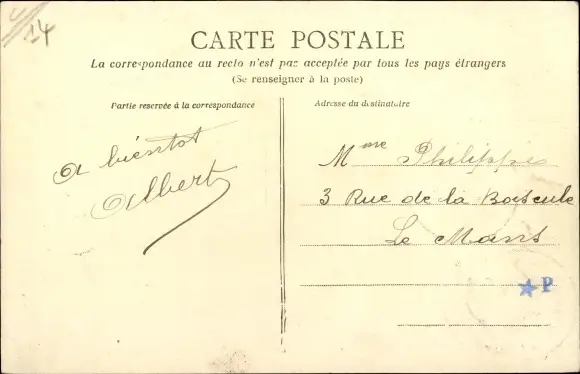 4/14
CARTE POSTALE
La correspondance au recto n'est pas acceptée par tous les pays étrangers
(Se renseigner à la poste)
Partie reservée à la correspondance
Adresse du destinataire
A bientot
Albert
Mme Philippe
3 Rue de la Bascule
Le Mans
P